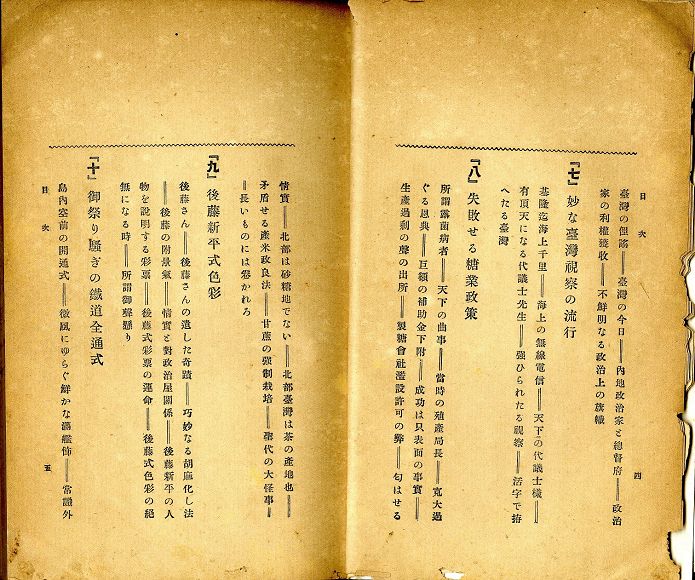 目次
四
臺灣の俚謠――臺灣の今日――內地政治家と總督府――政治
家の利權獲收――不鮮明なる政治上の旗幟
『七』妙な臺灣視察の流行
基隆迄海上千里――海上の無線電信――天下の代議士樣――
有頂天になる代議士先生――强ひられたる視察――活字で拵
へたる臺灣
『八』失敗せる糖業政策
所謂露菌病者――天下の曲事――當時の殖產局長――寬大過
ぐる恩典――巨額の補助金下附――成功は只表面の事實――
生產過剩の聲の出所――製糖會社濫設許可の弊――匂はせる
情實――北部は砂糖地でない――北部臺灣は茶の產地也――
矛盾せる產米改良法――甘蔗の强制栽培――聖代の大怪事――
――長いものには卷かれろ
『九』後藤新平式色彩
後藤さん――後藤さんの遺した奇蹟――巧妙なる胡麻化し法
――後藤の附景氣――情實と對政治屋關係――後藤新平の人
物を說明する彩票――後藤式彩票の運命――後藤式色彩の絕
無になる時――所謂御聲懸り
『十』御祭り騷ぎの鐵道全通式
島內空前の開通式――微風にゆらぐ鮮かな滿艦飾――常識外
目次
五